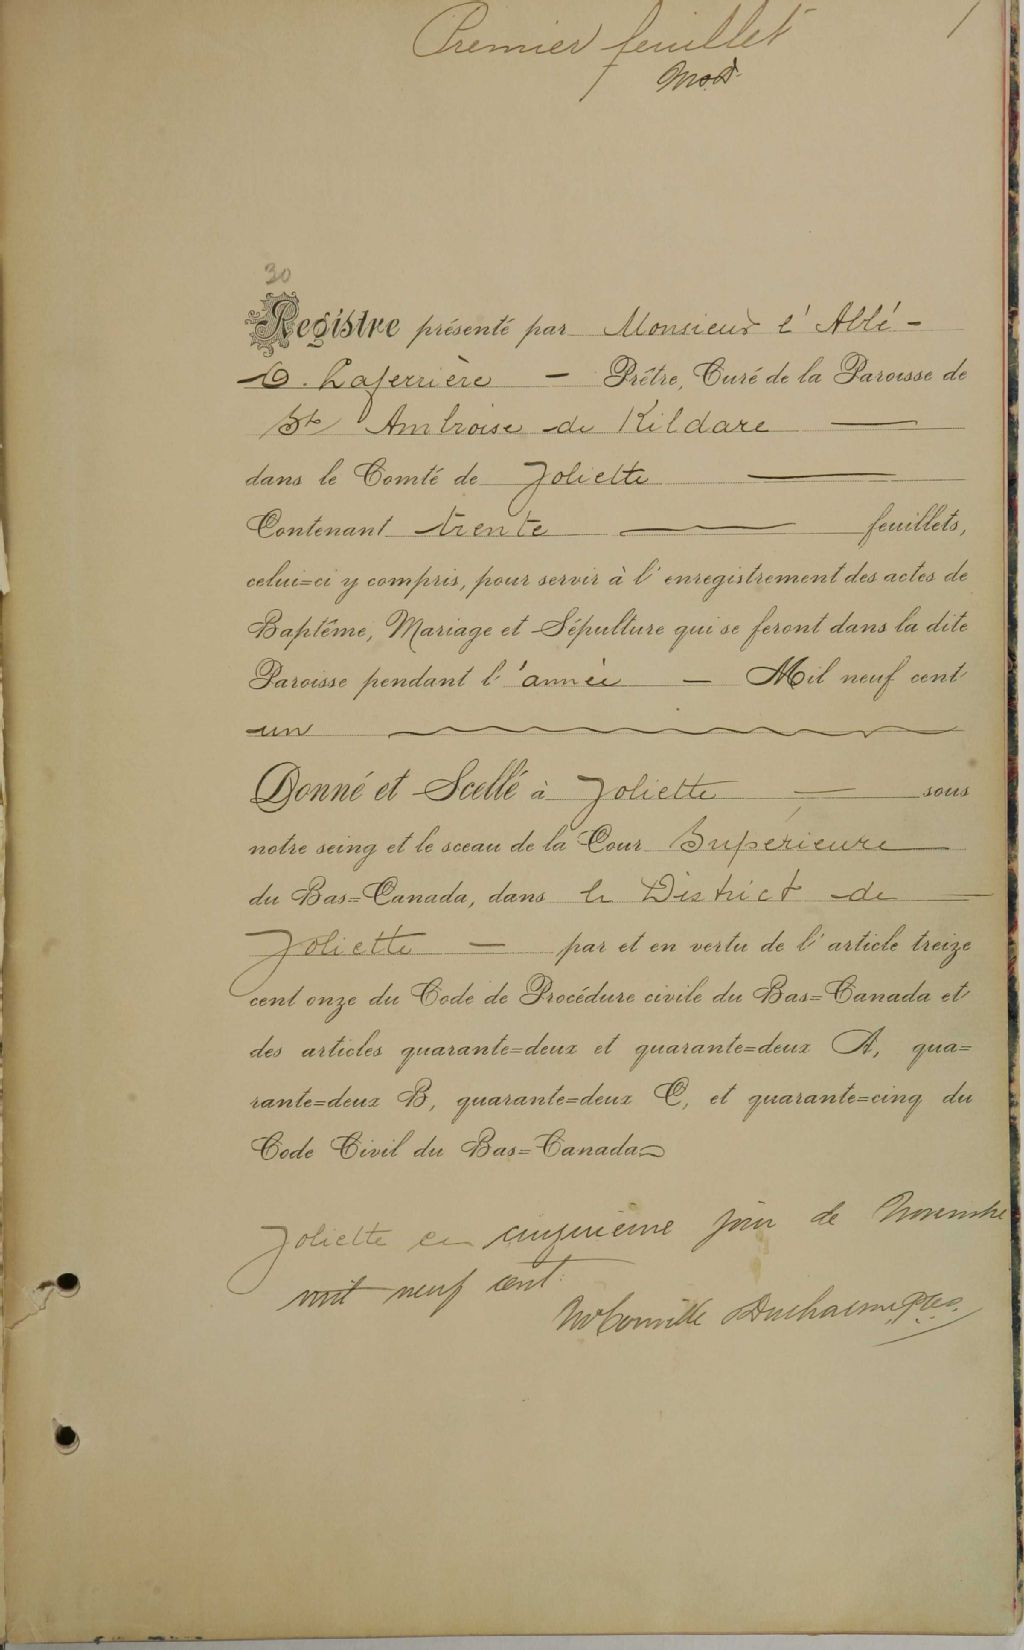 Premier feuillet 1
McD
30
Registre présenté par Monsieur l'Abbé -
O. Laferrière - Prêtre, Curé de la Paroisse de
St Ambroise de Kildare
dans le Comté de Joliette
Contenant trente feuillets,
celui=ci y compris, pour servir à l'enregistrement des actes de
Baptême, Mariage et Sépulture qui se feront dans la dite
Paroisse pendant l'année - Mil neuf cent
un
Donné et Scellé à Joliette - sous
notre seing et le sceau de la Cour Supérieure
du Bas=Canada, dans le District de
Joliette - par et en vertu de l'article treize
cent onze du Code de Procédure civile du Bas=Canada et
des articles quarante=deux et quarante=deux A, qua=
rante=deux B, quarante=deux C, et quarante=cinq du
Code Civil du Bas=Canada
Joliette ce cinquième jour de Novembre
mil neuf cent
McConville Ducharme